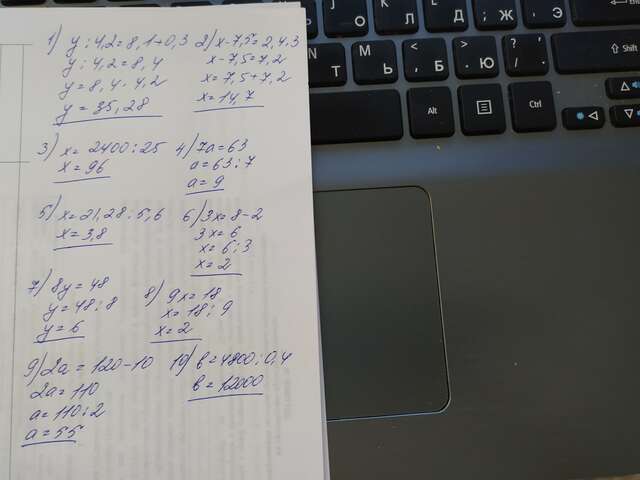 1) y : 4,2 = 8,1 + 0,3
y : 4,2 = 8,4
y = 8,4 · 4,2
y = 35,28
2) x - 7,5 = 2,4 · 3
x - 7,5 = 7,2
x = 7,5 + 7,2
x = 14,7
3) x = 2400 : 25
x = 96
4) 7a = 63
a = 63 : 7
a = 9
5) x = 21,28 : 5,6
x = 3,8
6) 3x = 8 - 2
3x = 6
x = 6 : 3
x = 2
7) 8y = 48
y = 48 : 8
y = 6
8) 9x = 18
x = 18 : 9
x = 2
9) 2a = 120 - 10
2a = 110
a = 110 : 2
a = 55
10) b = 4800 : 0,4
b = 12000
О Л Д Ж Э Enter
Т Ь Б Ю Shift
Alt Ctrl